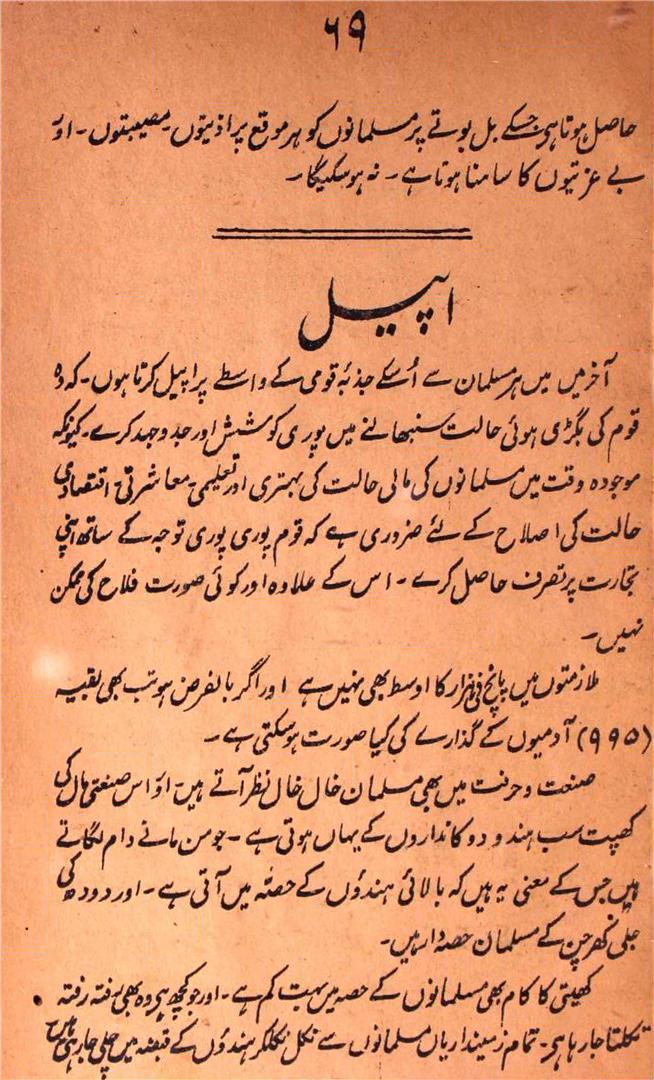 ۶۹
حاصل ہوتا ہی جسکے بل بوتے پر مسلمانوں کو ہر موقع پر اذیتوں۔ مصیبتوں۔ اور
بے عزتیوں کا سامنا ہوتا ہے۔ نہ ہو سکیگا۔
اپیل
آخر میں میں ہر مسلمان سے اُسکے جذبۂ قومی کے واسطے پر اپیل کرتا ہوں۔ کہ وہ
قوم کی بگڑی ہوئی حالت سنبھالنے میں پوری کوشش اور جدوجہد کرے۔ کیونکہ
موجودہ وقت میں مسلمانوں کی مالی حالت کی بہتری اور تعلیمی۔ معاشرتی۔ اقتصادی
حالت کی اصلاح کے لئے ضروری ہے کہ قوم پوری پوری توجہ کے ساتھ اپنی
تجارت پر تصرف حاصل کرے۔ اس کے علاوہ اور کوئی صورت فلاح کی ممکن
نہیں۔
ملازمتوں میں پانچ فی ہزار کا اوسط بھی نہیں ہے اور اگر بالفرض ہو تب بھی بقیہ
(۹۹۵) آدمیوں کے گذارے کی کیا صورت ہو سکتی ہے۔
صنعت و حرفت میں بھی مسلمان خال خال نظر آتے ہیں۔ اور اس صنعتی مال کی
کھپت سب ہندو دوکانداروں کے یہاں ہوتی ہے۔ جو من مانے دام لگاتے
ہیں جس کے معنی یہ ہیں کہ بالائی ہندؤں کے حصّہ میں آتی ہے۔ اور دودھ کی
جلی کھرچن کے مسلمان حصہ دار ہیں۔
کھیتی کا کام بھی مسلمانوں کے حصہ میں بہت کم ہے۔ اور جو کچھ ہے وہ بھی رفتہ رفتہ
نکلتا جا رہا ہی۔ تمام زمینداریاں مسلمانوں سے نکل نکلکر ہندؤں کے قبضہ میں چلی جا رہی ہیں